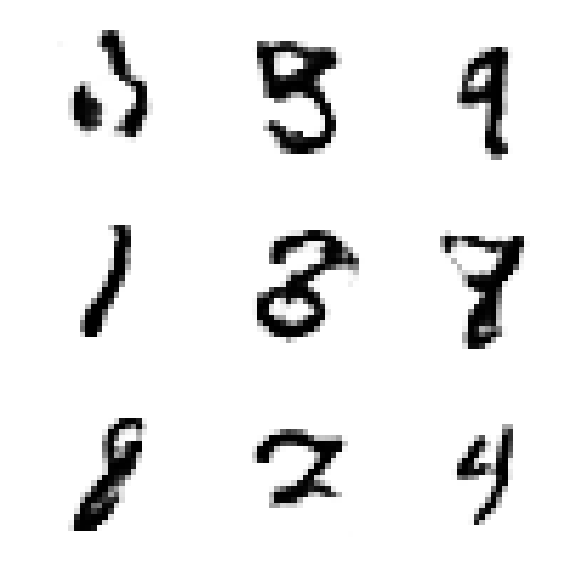 5 9
1 8 8
8 2 4